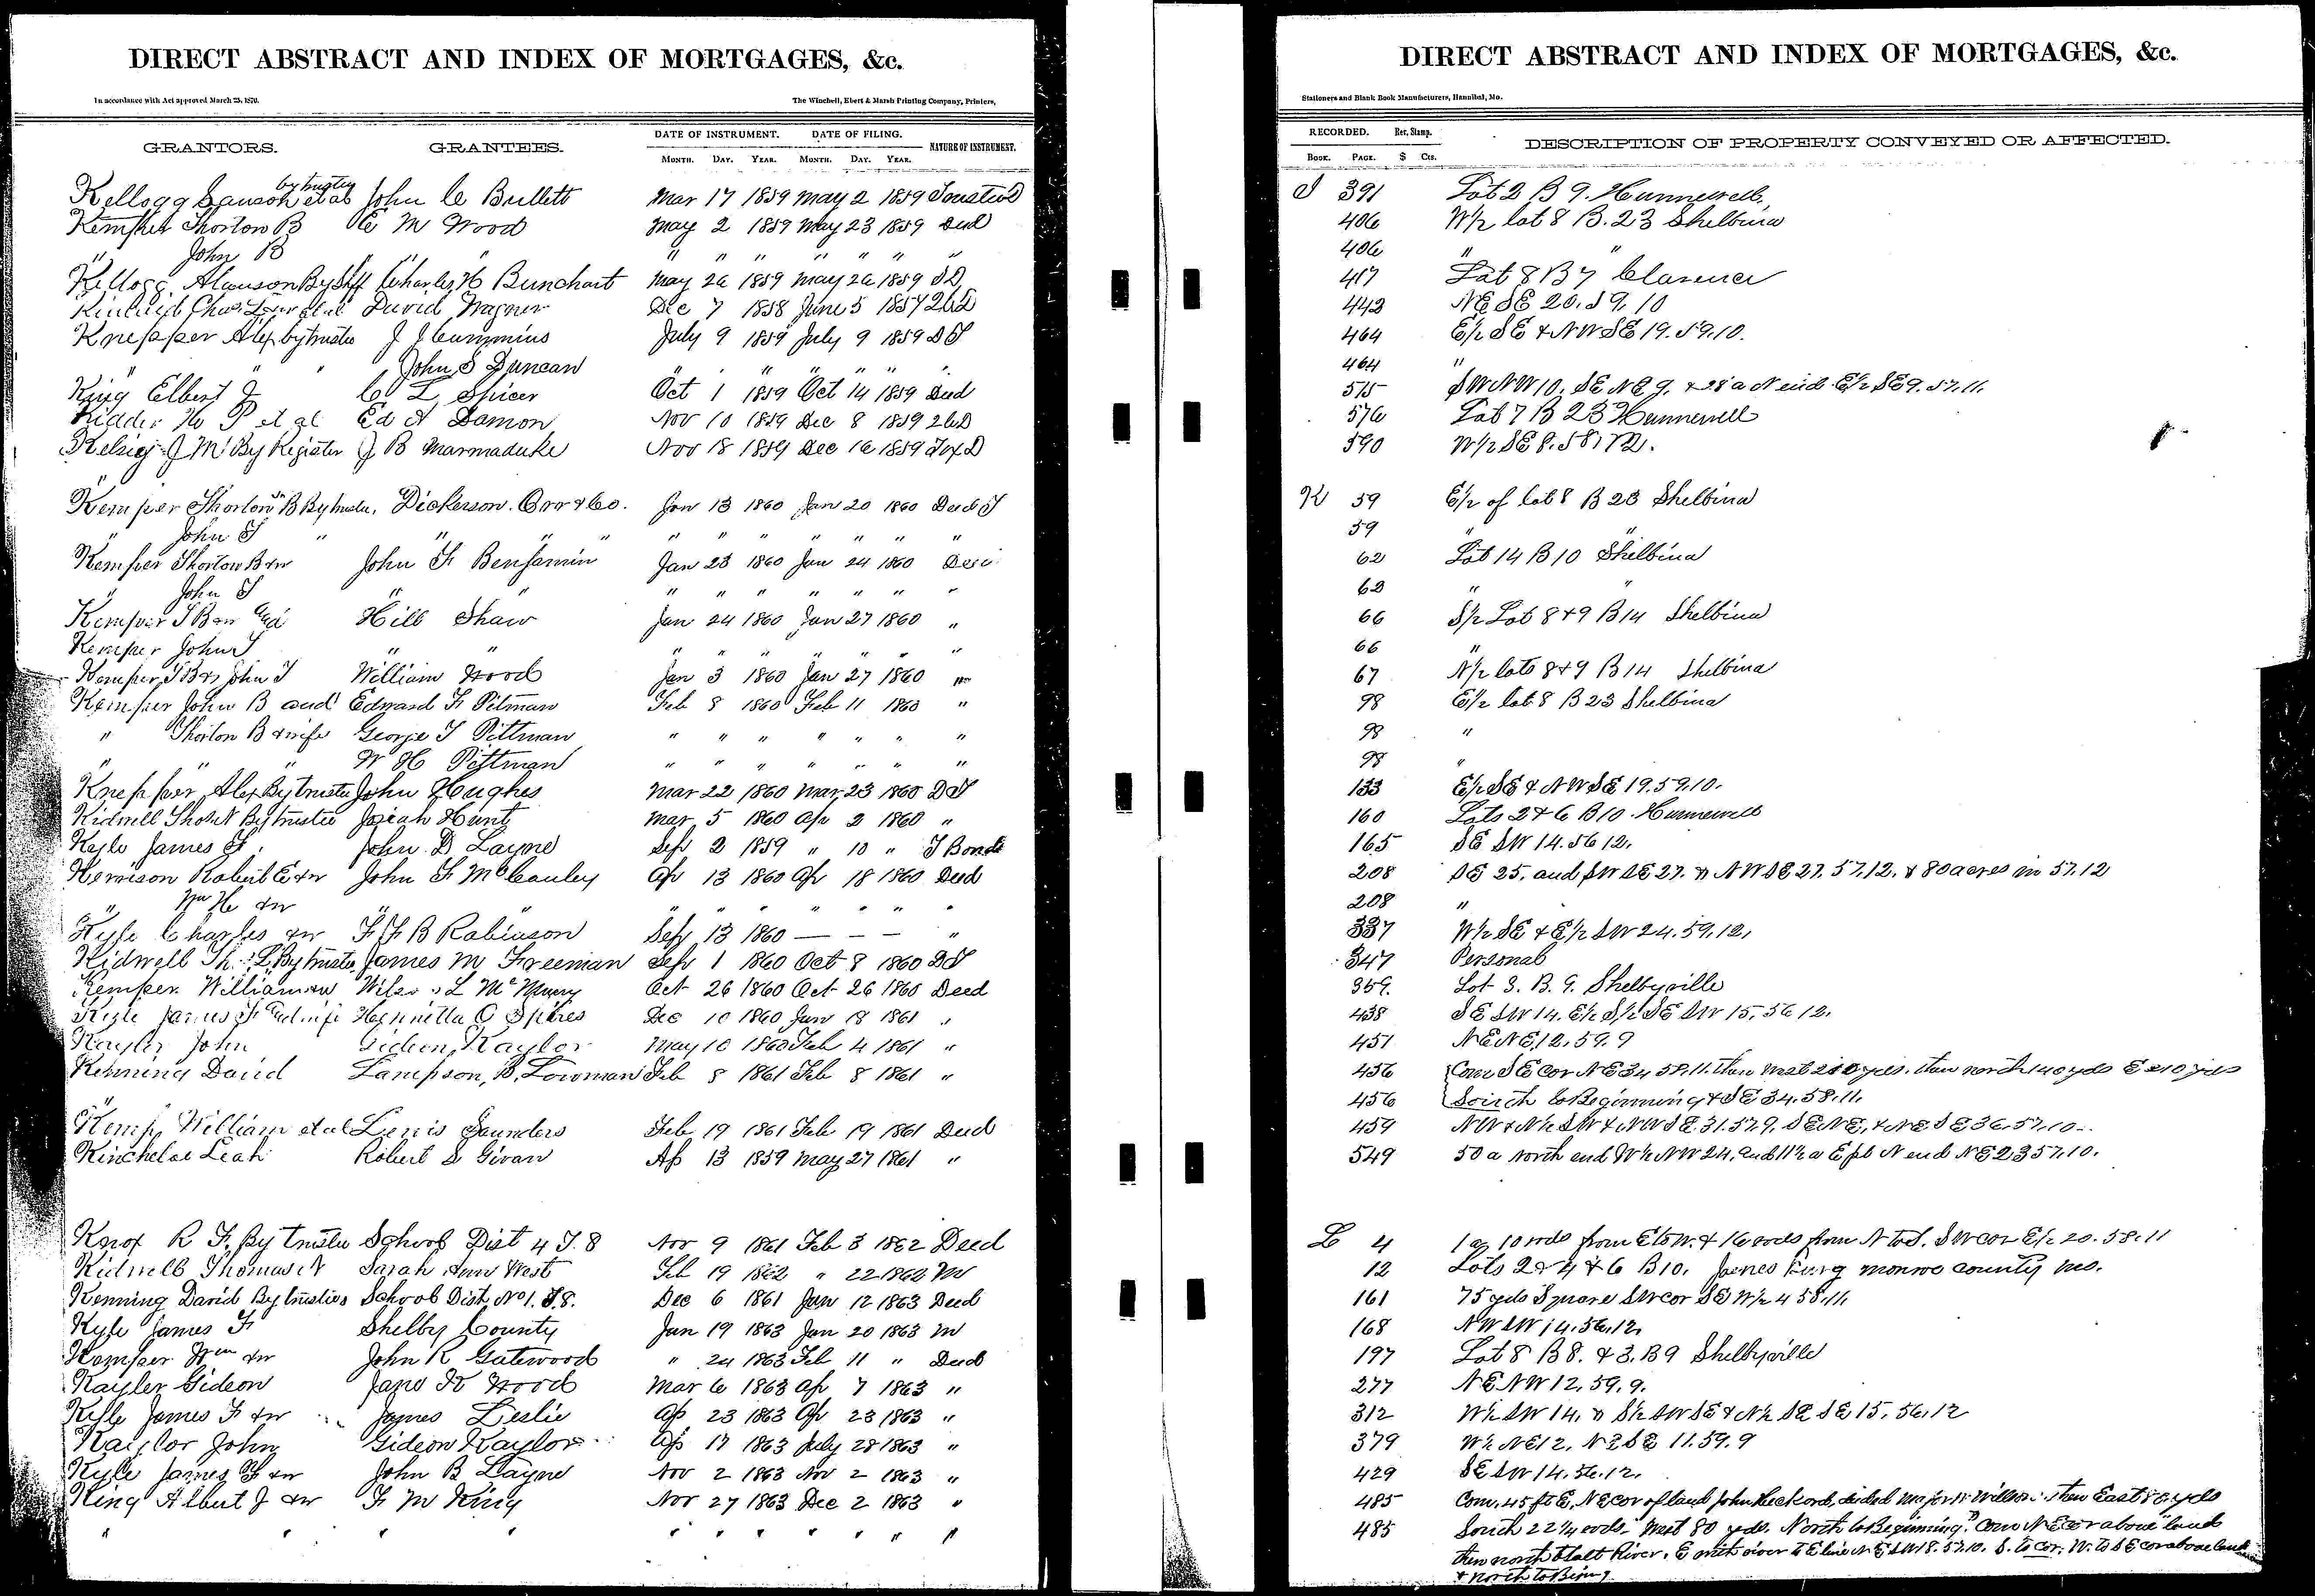 DIRECT ABSTRACT AND INDEX OF MORTGAGES, &c.
In accordance with Act approved March 25, 1870. The Winchell, Ebert & Marsh Printing Company, Printers,
GRANTORS. GRANTEES. DATE OF INSTRUMENT. DATE OF FILING. NATURE OF INSTRUMENT.
MONTH. DAY. YEAR. MONTH. DAY. YEAR.
by trustee
Kellogg et al John C Bullett Mar 17 1859 May 2 1859
Kemper Thorton B C M Wood May 2 1859 May 23 1859 Deed
" John B " " " " " " " "
Kellogg Alanson By Shff Charles H Bunchart May 26 1859 May 26 1859 SD
Kincaid Chas et al David Wagner Dec 7 1858 June 5
Knepper Alex by trustee J J Cummins July 9 1859 July 9 1859 DT
" " " John S Duncan " " " " " " "
King Elbert J C L Spicer Oct 1 1859 Oct 14 1859 Deed
Kidder H P et al Ed A Damon Nov 10 1859 Dec 8 1859
J M By Register J B Marmaduke Nov 18 1859 Dec 16 1859 Tax D
Kemper Thorton B By trustee, Dickerson. Orr & Co. Jan 13 1860 Jan 20 1860 Deed T
" John T " " " " " " " " " "
Kemper Thorton B & w John F Benjamin Jan 23 1860 Jan 24 1860 Deed
" John T " " " " " " " " "
Kemper T B & w Hill Shaw Jan 24 1860 Jan 27 1860 "
Kemper John T " " " " " " " " "
Kemper T B & John T William Wood Jan 3 1860 Jan 27 1860 "
Kemper John B and Edward F Pitman Feb 8 1860 Feb 11 1860 "
" Thorton B & wife George T Pittman " " " " " " "
" " " W H Pittman " " " " " " "
Knepper Alex By trustee John Hughes Mar 22 1860 Mar 23 1860 DT
Kidwell Thos N By trustee Josiah Hunt Mar 5 1860 Apr 2 1860 "
Kyle James F. John D Layne Sept 2 1859 " 10 " T Bond
Robert E & w John F McCauley Ap 13 1860 Ap 18 1860 Deed
" Wm H & w " " " " " " " "
Kyle Charles & w F F B Robinson Sept 13 1860 — — — "
Kidwell Th. By trustee James M Freeman Sept 1 1860 Oct 8 1860 DT
Kemper William & w L McMurry Oct 26 1860 Oct 26 1860 Deed
Kyle James F and wife Henrietta C Spires Dec 10 1860 Jan 18 1861 "
Kayler John Gideon Kaylor May 10 1860 Feb 4 1861 "
Kenning David Lampson, B, Lowman Feb 8 1861 Feb 8 1861 "
Kemp William et al Lewis Saunders Feb 19 1861 Feb 19 1861 Deed
Kincheloe Leah Robert D Givan Ap 13 1859 May 27 1861 "
Knox R F. By trustee School Dist 4 T. 8 Nov 9 1861 Feb 3 1862 Deed
Kidwell Thomas N Sarah Ann West Feb 19 1862 " 22 1862 M
Kenning David By trustees School Dist, No 1. T. 8. Dec 6 1861 Jan 12 1863 Deed
Kyle James F Shelby County Jan 19 1863 Jan 20 1863 M
Kemper Wm & w John R Gatewood " 24 1863 Feb 11 " Deed
Kayler Gideon Jane K Wood Mar 6 1863 Ap 7 1863 "
Kyle James F & w James Leslie Ap 23 1863 Ap 23 1863 "
Kaylor John Gideon Kaylor Ap 17 1863 July 28 1863 "
Kyle James F & w John B Layne Nov 2 1863 Nov 2 1863 "
King Albert J & w F M King Nov 27 1863 Dec 2 1863 "
" " " " " " " " " " "
DIRECT ABSTRACT AND INDEX OF MORTGAGES, &c.
Stationers and Blank Book Manufacturers, Hannibal, Mo.
RECORDED. Rev. Stamp. DESCRIPTION OF PROPERTY CONVEYED OR AFFECTED.
BOOK. PAGE. $ Cts.
J 391 Lot 2 B 9. Hunnewell,
406 W/2 lot 8 B. 23 Shelbina
406 " "
417 Lot 8 B 7 Clarence
442 NE SE 20. 59. 10
464 E/2 SE & NW SE 19. 59. 10.
464 "
515 SW NW 10. SE NE 9. & 28 a N end E/2 SE 9. 57. 11.
576 Lot 7 B 23 Hunnewell
590 W/2 SE 8. 58. 12.
K 59 E/2 of lot 8 B 23 Shelbina
59 " "
62 Lot 14 B 10 Shelbina
62 " "
66 S/2 Lot 8 & 9 B 14 Shelbina
66 "
67 N/2 lots 8 & 9 B 14 Shelbina
98 E/2 lot 8 B 23 Shelbina
98 "
98 "
133 E/2 SE & NW SE 19. 59. 10.
160 Lots 2 & 6 B 10. Hunnewell
165 SE SW 14. 56 12.
208 SE 25. and SW SE 27. & NW SE 27. 57. 12. & 80 acres in 57. 12
208 "
337 W/2 SE & E/2 SW 24. 59. 12.
347 Personal
359. Lot 3. B. 9. Shelbyville
438 SE SW 14. E/2 S/2 SE SW 15. 56 12.
451 NE NE 12. 59. 9
456 Com SE Cor NE 34 58. 11. then West 210 yds. then north 140 yds E 210 yds
456 South to Beginning & SE 34. 58. 11.
459 NW & N/2 SW & NW SE. 31. 57. 9. SE NE, & NE SE 36. 57. 10.
549 50 a North end W/2 NW 24. and 11½ a E pt N end NE 23 57. 10.
L 4 1 a, 10 rods from E to W. & 16 rods from N to S. SW cor E/2 20. 58. 11
12 Lots 2 & 4 & 6 B 10. James Monroe County Mo.
161 75 yds Square SW cor SE W/2 4 58. 11.
168 NW SW 14. 56. 12.
197 Lot 8 B 8. & 3. B 9 Shelbyville
277 NE NW 12. 59. 9.
312 W/2 SW 14. & S/2 SW SE & N/2 SE SE 15. 56. 12
379 W/2 NE 12. NE SE 11. 59. 9
429 SE SW 14. 56. 12.
485 Com. 45 ft E. NE cor of land John deeded Major then East 80 yds
485 South 22¼ rods. West 80 yds. North to Beginning. Com NE cor above land
then north to Salt River. E with river to E line NE SW 18. 57. 10. S. to Cor. W. to SE cor above land
& North to